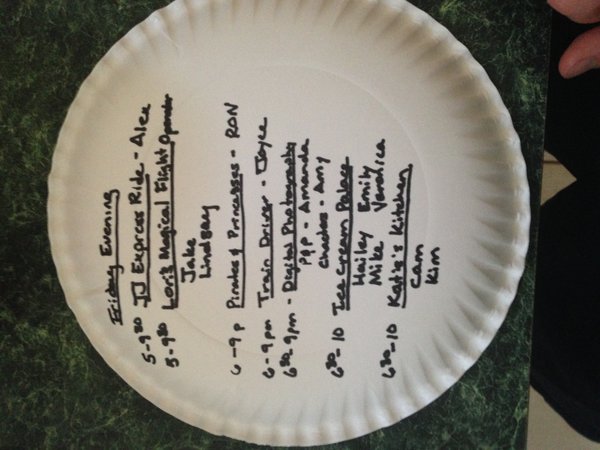 Friday Evening
5-9³⁰ JJ Express Ride - Alex
5-9³⁰ Lori's Magical Flight Operator
Jake
Lindsay
6-9p Pirates & Princesses - RON
6-9pm Train Driver - Joyce
6³⁰-9pm - Digital Photography
P&P - Amanda
Cheetos - Amy
6³⁰-10 Ice Cream Palace
Hailey Emily
Mike Veronica
6³⁰-10 Katie's Kitchen
Cam
Kim